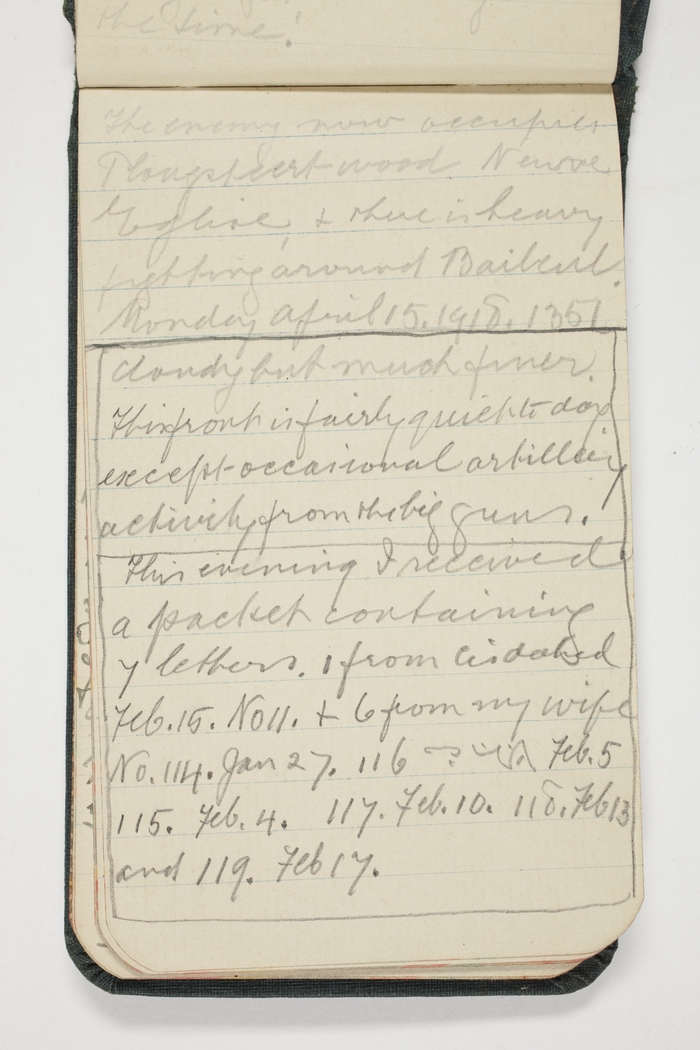 the time!
The enemy now occupies
Plougsteert wood. Neuve
Eglise, & there is heavy
fighting around Bailleul.
Monday April 15. 1918. 1351
Cloudy but much finer.
This front is fairly quiet to day
except occasional artillery
activity from the big guns.
This evening I received
a packet containing
7 letters. 1 from Cis dated
Feb. 15. No 11. & 6 from my wife
No. 114. Jan 27. 116 Feb. 5
115. Feb. 4. 117. Feb. 10. 118. Feb 13
and 119. Feb 17.